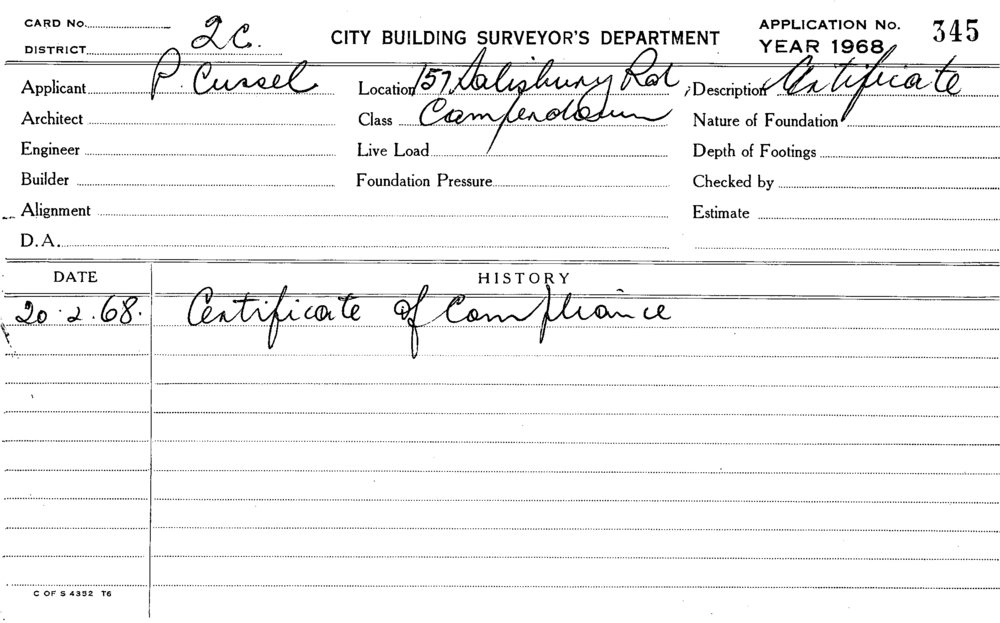 CARD No.
DISTRICT 2C.
CITY BUILDING SURVEYOR'S DEPARTMENT
APPLICATION No. 345
YEAR 1968
Applicant P. Cussel Location 157 Salisbury Rd, Description Certificate
Architect Class Camperdown Nature of Foundation
Engineer Live Load Depth of Footings
Builder Foundation Pressure Checked by
Alignment Estimate
D.A.
DATE HISTORY
20.2.68. Certificate of Compliance
C OF S 4352 T6